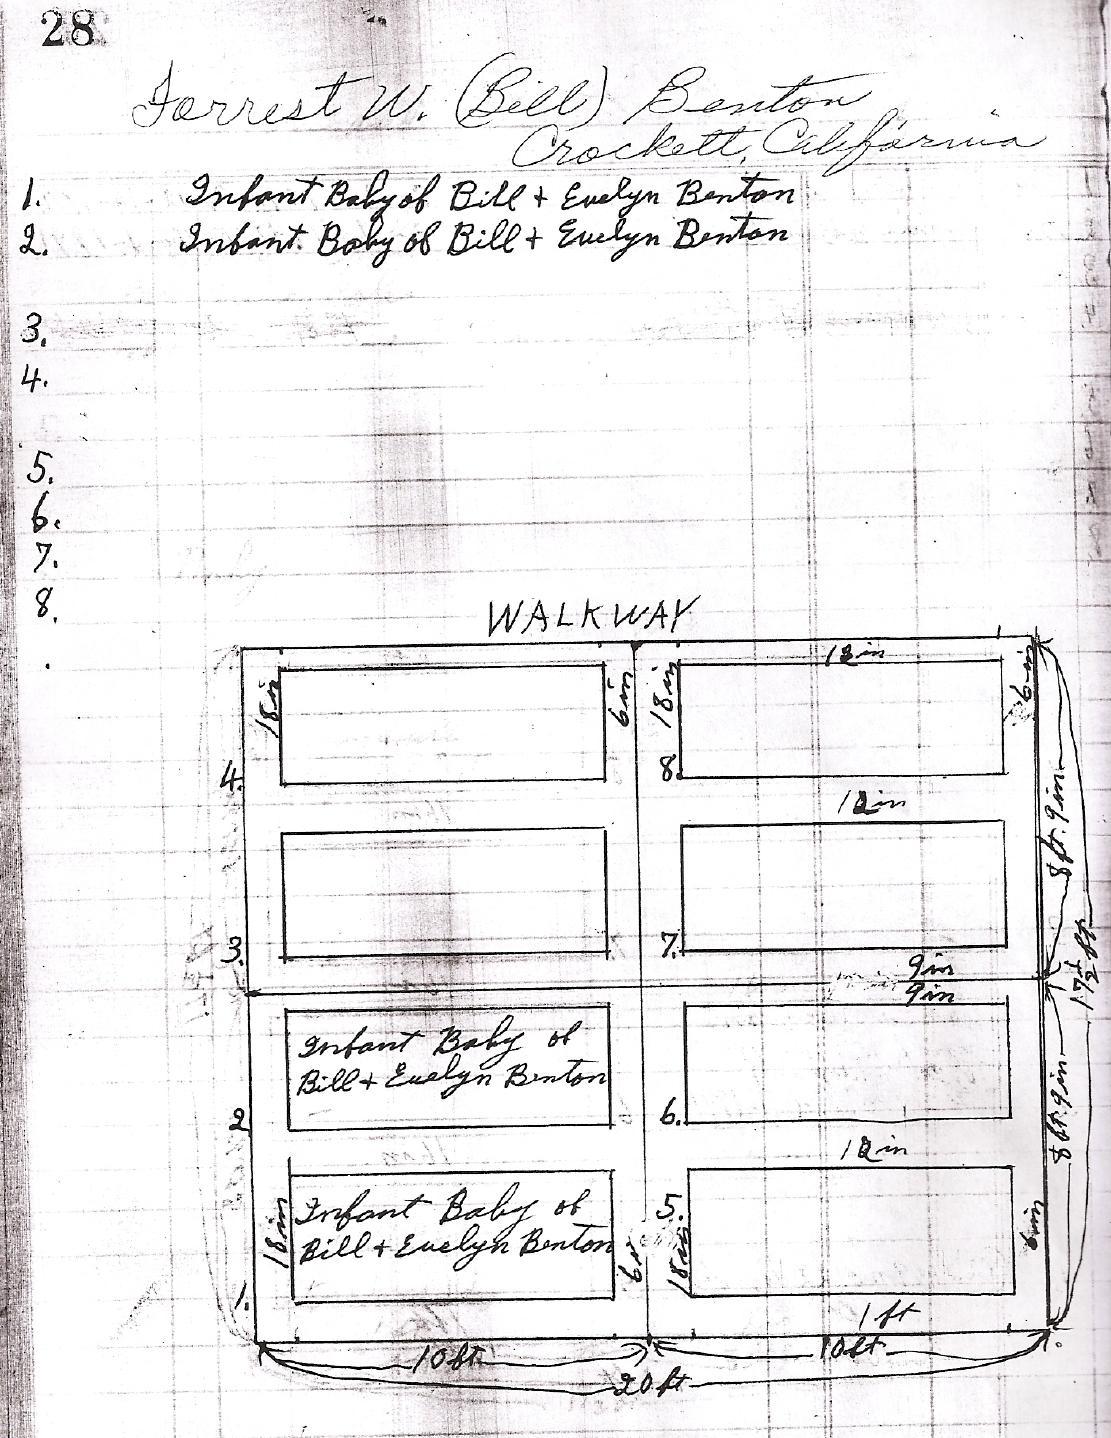 28
Forrest W. (Bill) Benton
Crockett, California
1. Infant Baby of Bill + Evelyn Benton
2. Infant. Baby of Bill + Evelyn Benton
3.
4.
5.
6.
7.
8.
WALKWAY
18 in
6 in
18 in
12 in
6 in
4.
8.
12 in
8 ft. 9 in.
3.
7.
9 in
9 in
17 1/2 ft
Infant Baby of
Bill + Evelyn Benton
2
6.
8 ft. 9 in.
12 in
Infant Baby of
Bill + Evelyn Benton
18 in
6 in
5.
18 in
6 in
1.
1 ft
10 ft.
10 ft.
20 ft.